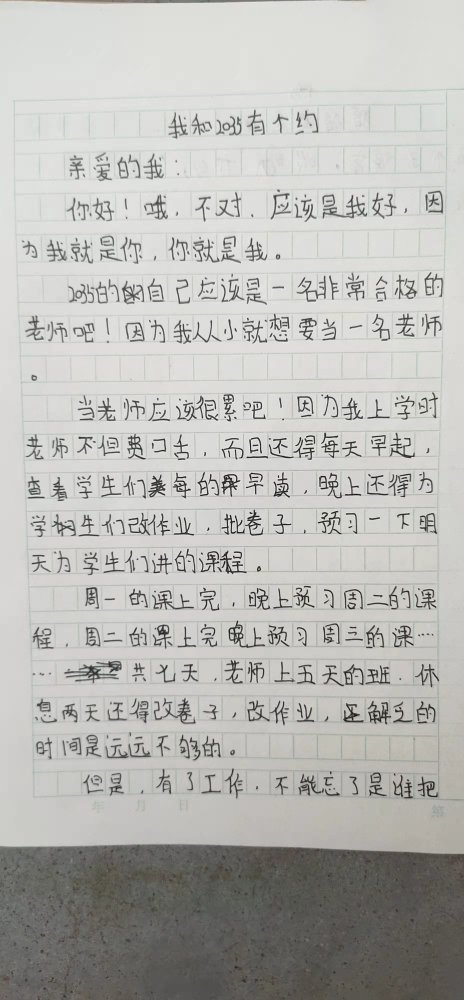 我和2035有个约
亲爱的我：
你好！哦，不对，应该是我好，因
为我就是你，你就是我。
2035的自己应该是一名非常合格的
老师吧！因为我从小就想要当一名老师
。
当老师应该很累吧！因为我上学时
老师不但费口舌，而且还得每天早起，
查看学生们每的早读，晚上还得为
学生们改作业，批卷子，预习一下明
天为学生们讲的课程。
周一的课上完，晚上预习周二的课
程，周二的课上完晚上预习周三的课……
…共七天，老师上五天的班．休
息两天还得改卷子，改作业，解乏的
时间是远远不够的。
但是，有了工作．不能忘了是谁把
年 月 日
第